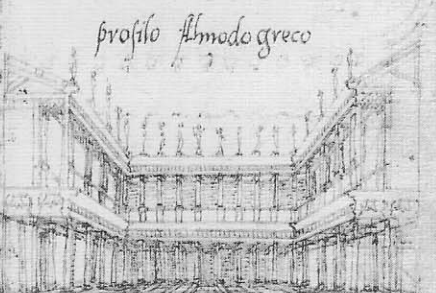 profilo Almodo greco